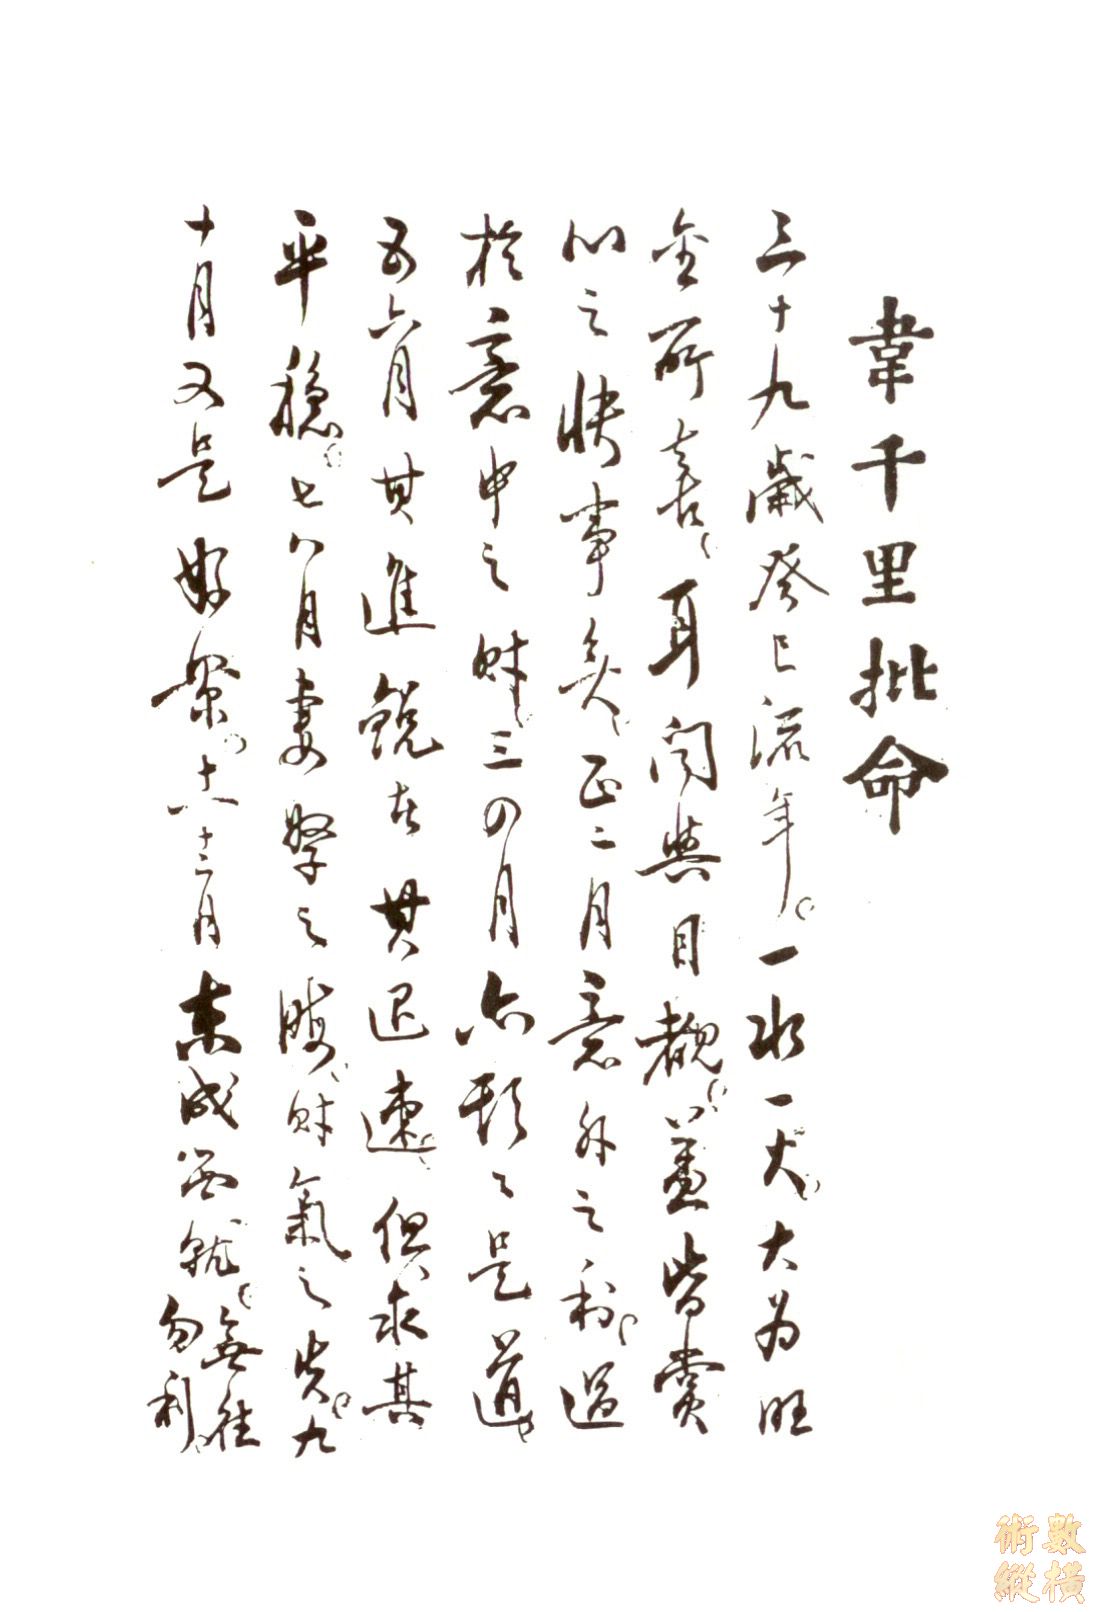 韋千里批命
三十九歲癸巳流年。一水一火。大为旺
金所喜、耳聞與目覩。蓋皆賞
心之快事矣、正二月意外之利、過
於意中之财、三四月亦頭々是道、
五六月其進銳者其退速、但求其
平穩。七八月妻孥之賤、财氣之失。九
十月又是好景。十一十二月未成思就。無往
勿利、
數橫
術縱